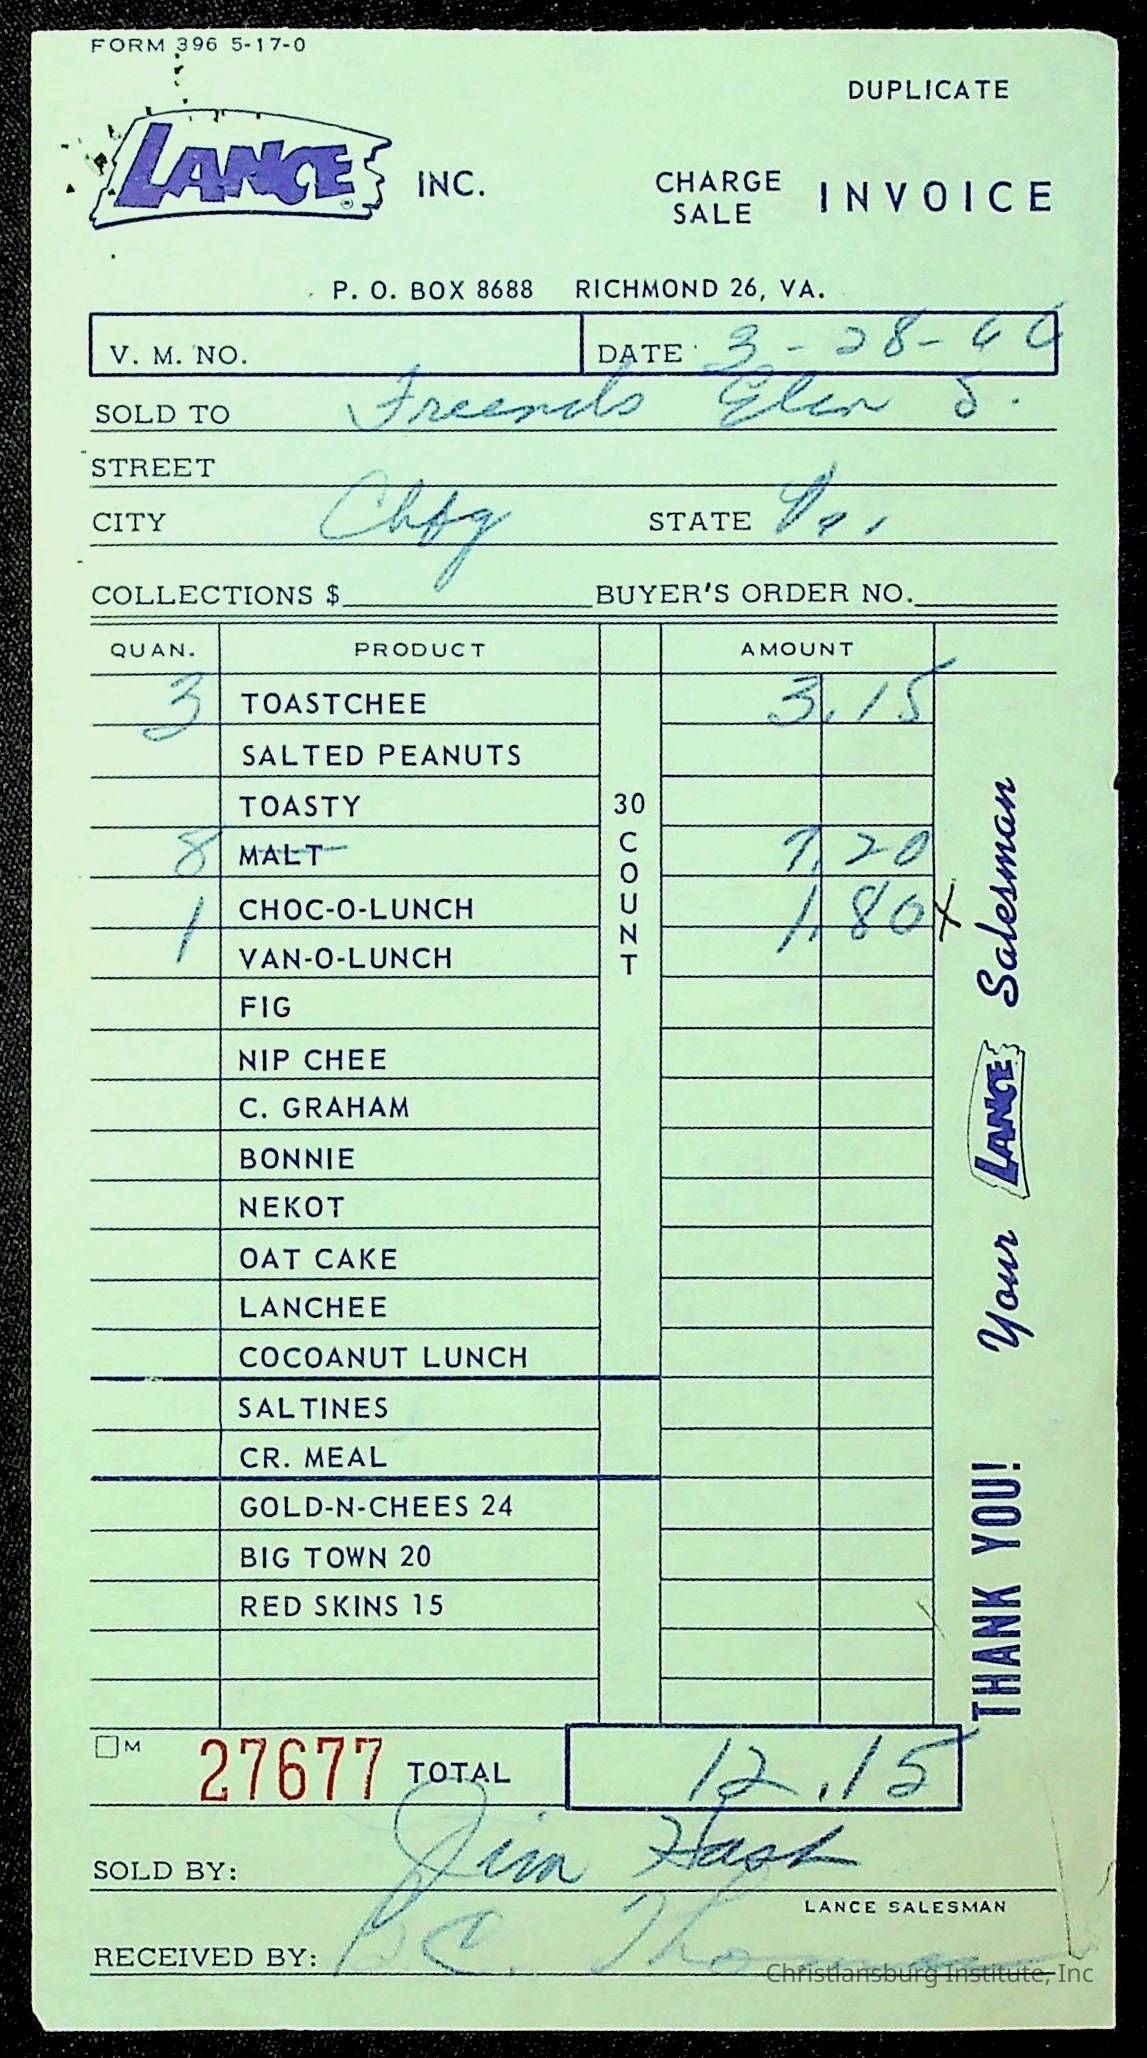 FORM 396 5-17-0
DUPLICATE
LANCE® INC. CHARGE SALE INVOICE
P. O. BOX 8688 RICHMOND 26, VA.
V. M. NO. DATE 3-28-66
SOLD TO Freends Glen S.
STREET
CITY Chbg STATE Va.
COLLECTIONS $ BUYER'S ORDER NO.
QUAN. PRODUCT AMOUNT
3 TOASTCHEE 3.15
SALTED PEANUTS
TOASTY
8 MALT 7.20
1 CHOC-O-LUNCH 1.80 x
VAN-O-LUNCH
FIG
NIP CHEE
C. GRAHAM
BONNIE
NEKOT
OAT CAKE
LANCHEE
COCOANUT LUNCH
30 COUNT
SALTINES
CR. MEAL
GOLD-N-CHEES 24
BIG TOWN 20
RED SKINS 15
THANK YOU! Your LANCE Salesman
M 27677 TOTAL 12.15
SOLD BY: Jim Hash
LANCE SALESMAN
RECEIVED BY: C. Thomas
Christiansburg Institute, Inc